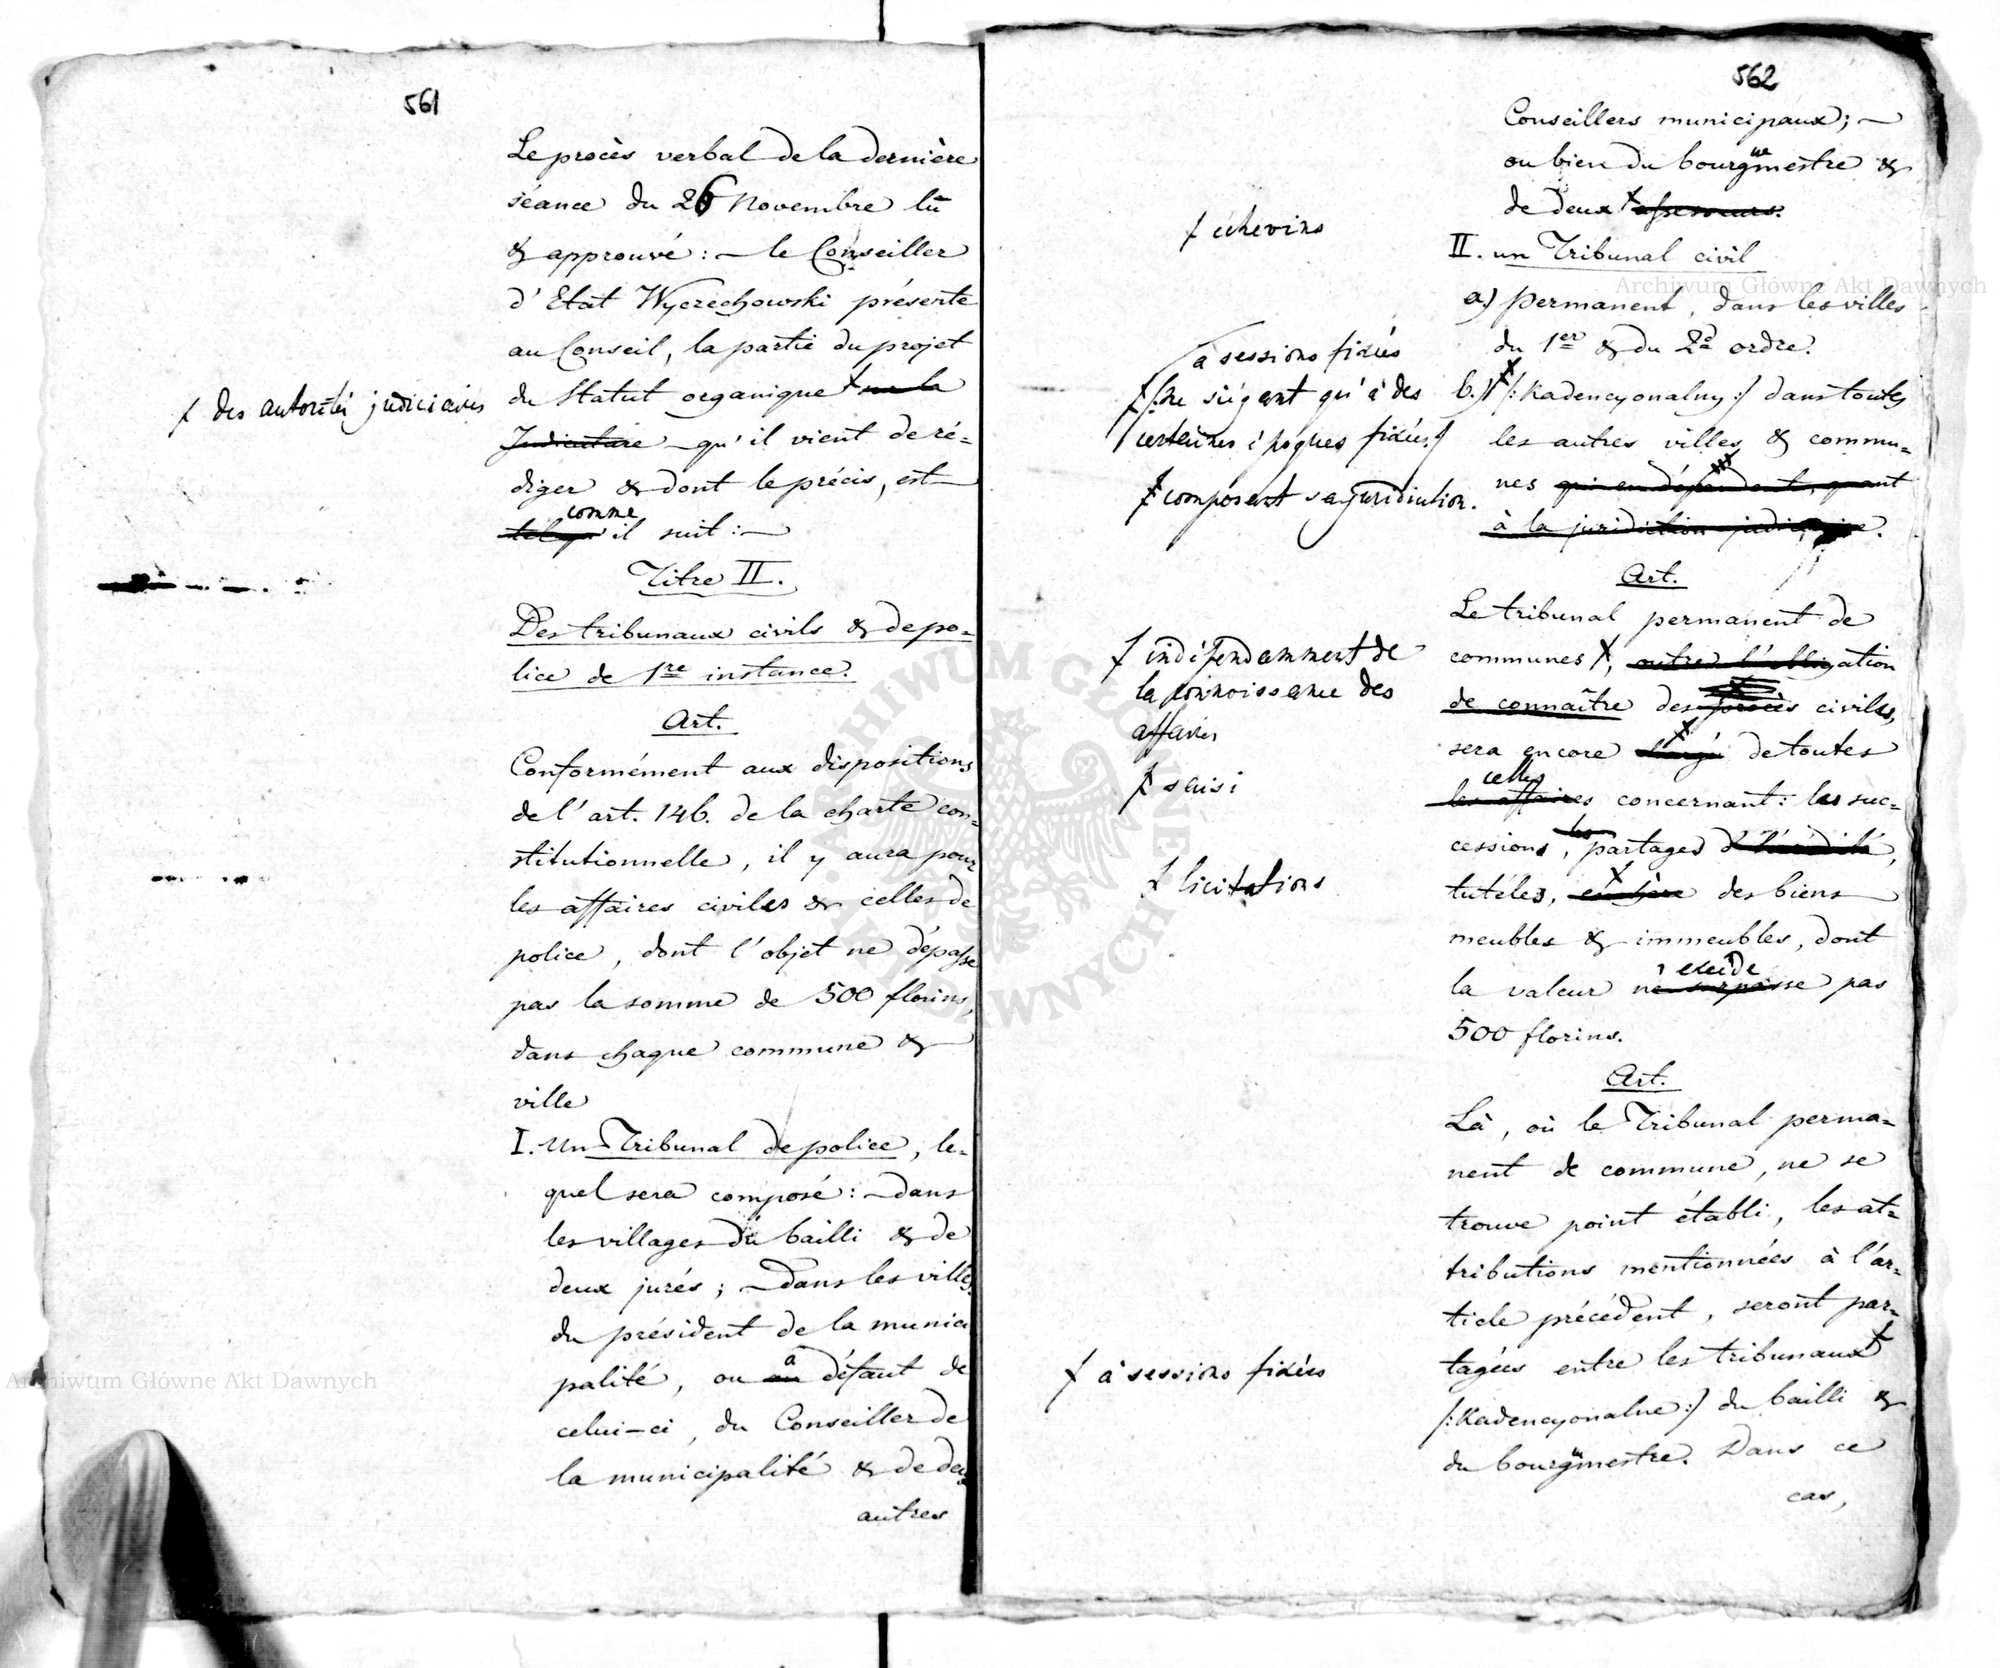 561
Le procès verbal de la dernière
séance du 26 Novembre lû
& approuvé: — le Conseiller
d'Etat Wyczechowski présente
au Conseil, la partie du projet
du Statut organique sur la
ƚ des autorités judiciaires
Judicature — qu'il vient de ré-
diger & dont le précis, est
comme
il suit: —
Titre II.
Des tribunaux civils & de po-
lice de 1re instance.
Art.
Conformément aux dispositions
de l'art. 146. de la charte con-
stitutionnelle, il y aura pour
les affaires civiles & celles de
police, dont l'objet ne dépasse
pas la somme de 500 florins,
dans chaque commune &
ville
I. Un Tribunal de police, le-
quel sera composé: — Dans
les villages du bailli & de
deux jurés; — Dans les villes
du président de la munici
palité, ou au défaut de
à
celui-ci, du Conseiller de
la municipalité & de deux
autres
562
Conseillers municipaux; —
ou bien du bourgmestre &
ue
de deux assesseurs.
ƚ échevins
II. un Tribunal civil
a) permanent, dans les villes
du 1er & du 2d ordre.
à sessions fixées
b.) /:Kadencyonalny:/ dans toutes
/:ne siégeant qu'à des
certaines époques fixées:/
les autres villes & commu-
nes qui en dépendent, quant
à la juridiction judiciaire.
ƚ composant sa juridiction.
Art.
Le tribunal permanent de
communes, outre l'obligation
ƚ indépendamment de
la connoissance des
affaires
de connaître des procès civiles,
sera encore chargé de toutes
ƚ saisi
celles
les affaires concernant: les suc-
cessions, les partages d'hérédité,
tutéles, enchère des biens
ƚ licitations
meubles & immeubles, dont
la valeur ne surpasse pas
n'excède
500 florins.
Art.
Là, où le Tribunal perma-
nent de commune, ne se
trouve point établi, les at-
tributions mentionnées à l'ar-
ticle précédent, seront par-
tagées entre les tribunaux
ƚ à sessions fixées
/:Kadencyonalne:/ du bailli &
du bourgmestre. Dans ce
ue
cas,
Archiwum Główne Akt Dawnych
Archiwum Główne Akt Dawnych
ARCHIWUM GŁÓWNE AKT DAWNYCH